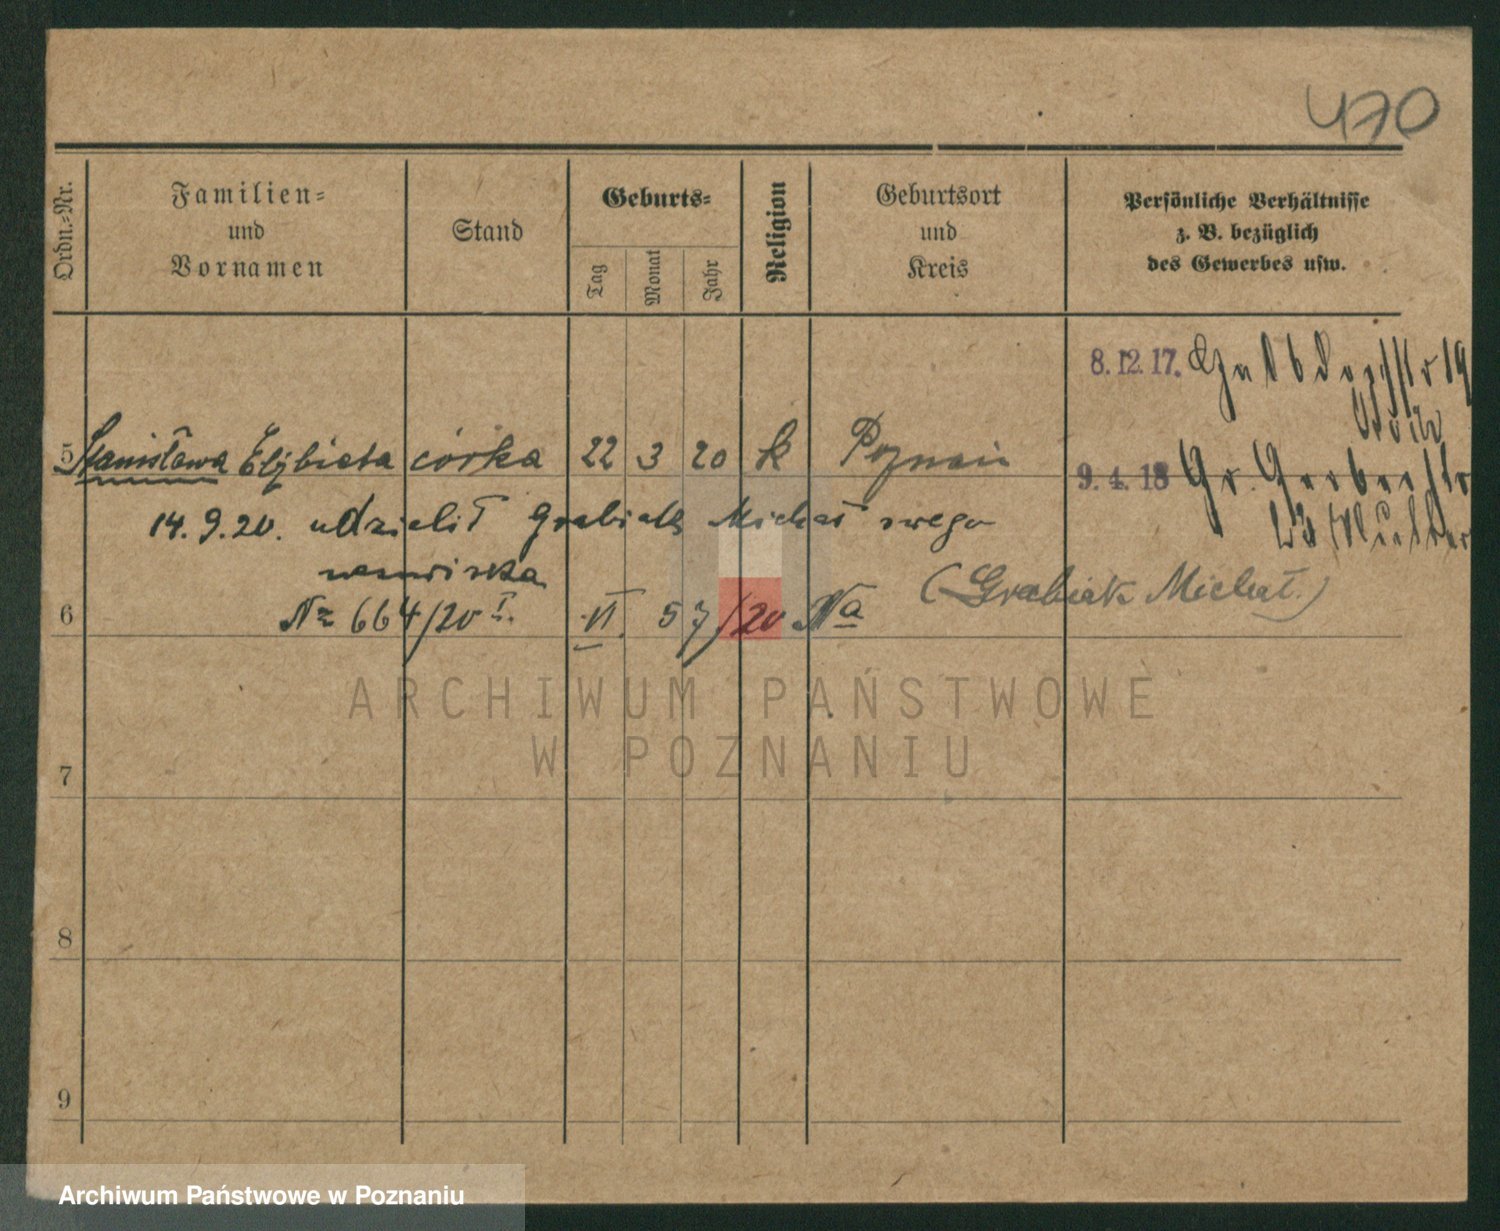 470
Ordn.-Nr.
Familien-
und
Vornamen
Stand
Geburts-
Tag
Monat
Jahr
Religion
Geburtsort
und
Kreis
Persönliche Verhältnisse
z. B. bezüglich
des Gewerbes usw.
8.12.17.
5 Stanisława Elżbieta córka 22 3 20 k Poznań
9.4.18 Gr. Gerberstr
23
14.9.20. udzielił Grabiak Michał swego
nazwiska
(Grabiak Michał.)
6 Nr 664/20 I. VI. 57/20 Na
ARCHIWUM PAŃSTWOWE
W POZNANIU
7
8
9
Archiwum Państwowe w Poznaniu